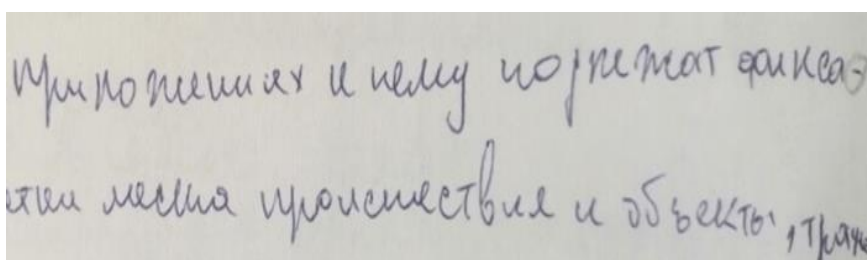 приложениях к нему подлежат фикса-
места происшествия и объекты,